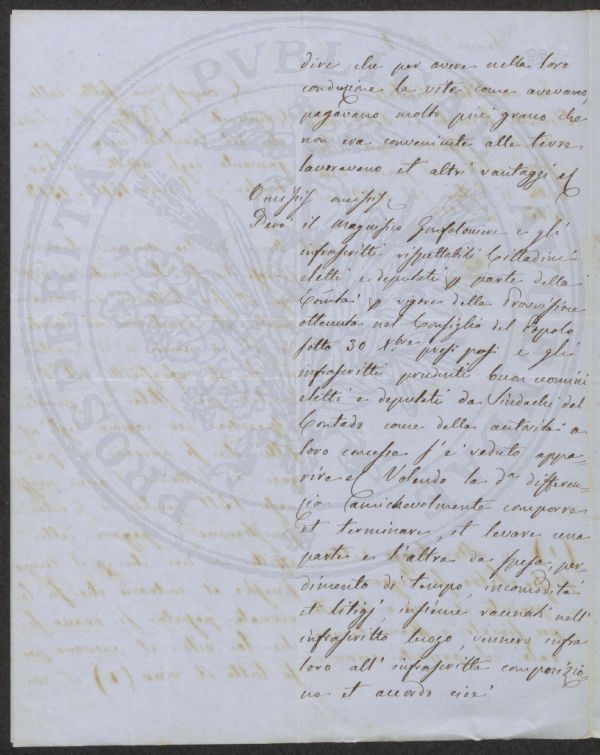 dire che per avere nella loro
conduzione la vite come avevano,
pagavano molto più grano che
non era conveniente alle terre
lavoravano et altri vantaggi et
Omissis omissis
Però il Magnifico Gonfaloniere e gli
infrascritti rispettabili Cittadini
eletti e deputati p parte della
Comtà p vigore della Provvisione
ottenuta nel Consiglio del Popolo
sotto 30 Xbre e gli
infrascritti prudenti buon uomini
eletti e deputati da Sindachi del
Contado come della autorità a
loro concessa s'è veduto appa-
rire et Volendo la da differen-
zia amichevolmente comporre
et terminare, et levare una
parte e l'altra da spesa, per
dimento di tempo, incomodità
et litigj, insieme raunati nell'
infrascritto luogo, vennero infra
loro all'infrascritta composizio-
ne et accordo cioè
PVBLICA
PROSPERITATI